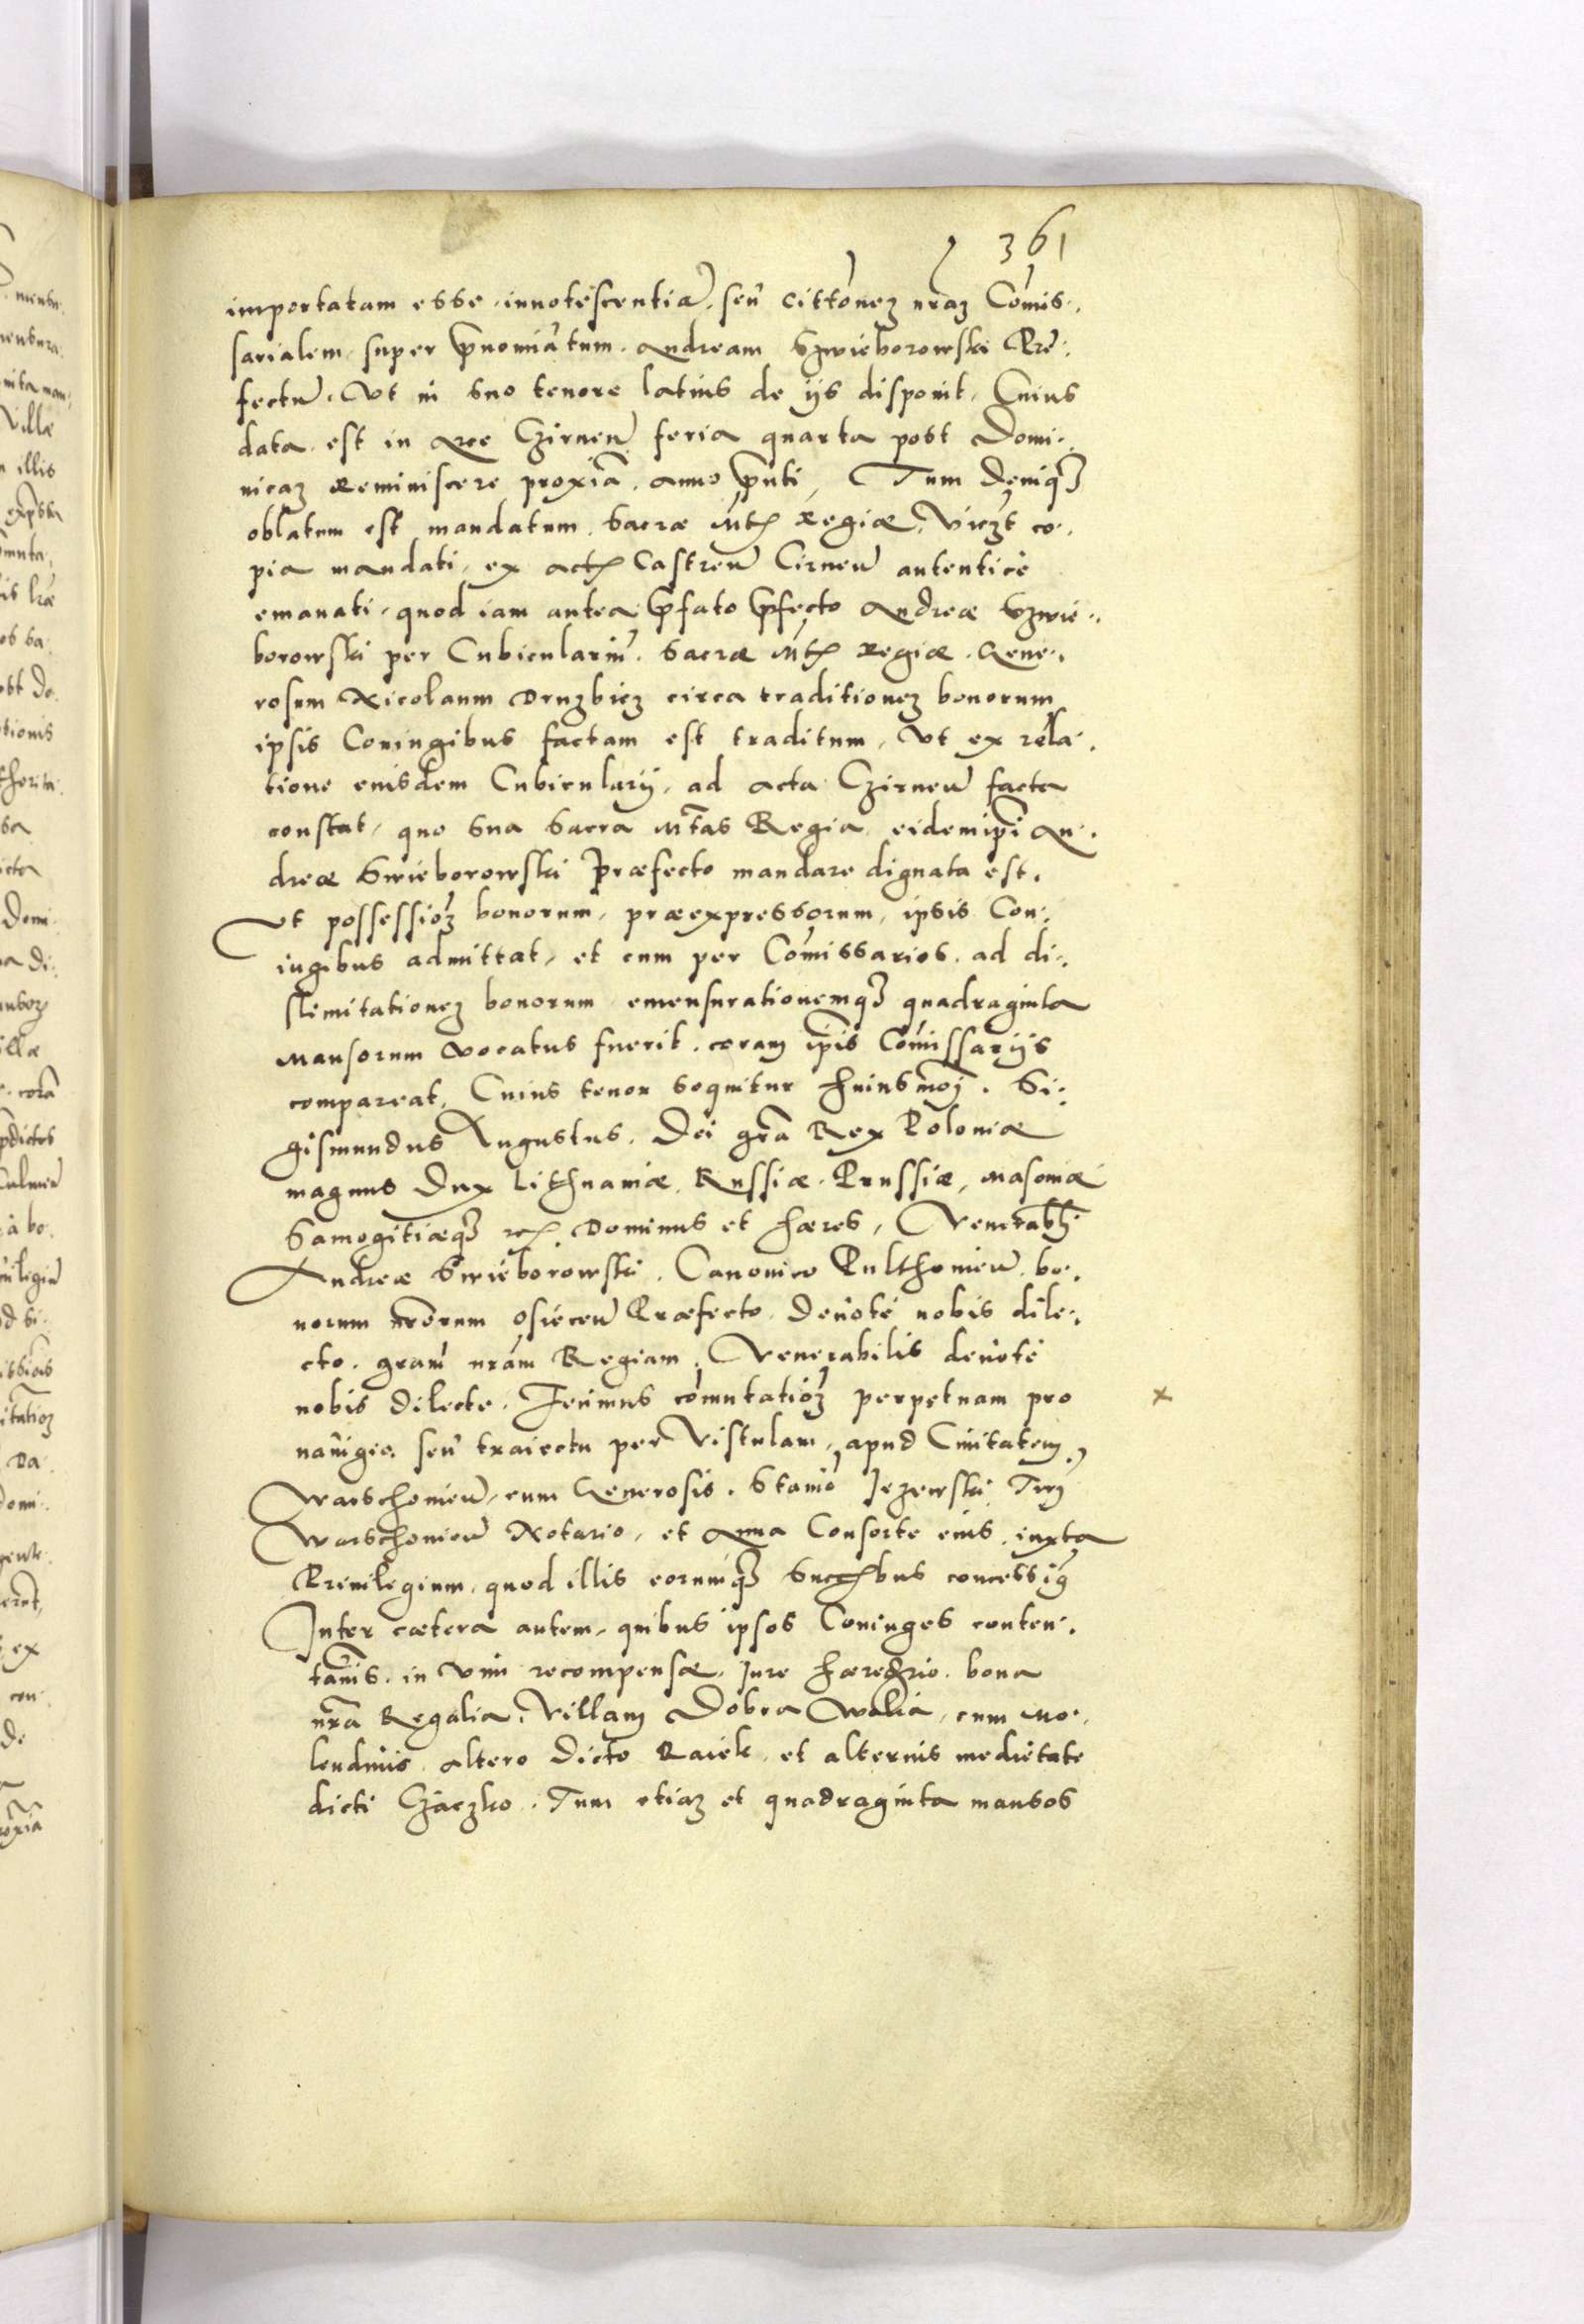 361
importatam esse innotescentiã. seu cittõnez nraz Cõmis-
sarialem super pnomĩatum Andream Szwieborowski Pre-
fectũ. Vt in suo tenore latius de ijs disponit. Cuius
data est in Arce Czirneñ feria quarta post Domi-
nicaz Reminiscere proxiã. anno pnti. Tum deniqȝ
oblatum est mandatum Sacræ Mtis Regiæ, viczt co-
pia mandati ex actis Castreñ Cirneñ autentice
emanati, quod iam antea pfato pfecto Andreæ Szwie-
borowski per Cubiculariũ Sacræ Mtis Regiæ. Gene-
rosum Nicolaum Druzbicz circa traditionez bonorum
ipsis Coniugibus factam est traditum, Vt ex rela-
tione eiusdem Cubicularij, ad acta Czirneñ facta
constat, quo Sua Sacra Mtas Regia eidem ipi An-
dreæ Swieborowski Præfecto mandare dignata est.
Vt possessioz bonorum, præexpressorum, ipsis Con-
iugibus admittat, et cum per Cõmissarios ad di-
slimitationez bonorum emensurationemqȝ quadraginta
mansorum vocatus fuerit. coram ipis Cõmissarijs
compareat. Cuius tenor sequitur huiusmoi. Si-
gismundus Augustus. Dei gra Rex Poloniæ
magnus Dux Lithuaniæ, Russiæ, Prussiæ, Masoniæ
Samogitiæqȝ etc. Dominus et hæres, Venerabli
Andreæ Swieborowski. Canonico Pulthonieñ. bo-
norum nrorum Osieceñ Præfecto. Deuote nobis dile-
cto. gram nram Regiam. Venerabilis deuote
nobis dilecte. Fecimus cõmutatioz perpetuam pro
nauigio seu traiectu per Vistulam, apud Ciuitatem
Warschouieñ, cum Generosis. Stanio Jezewski Trrj
Warschouieñ Notario, et Anna Consorte eius, iuxta
Priuilegium, quod illis eorumqȝ succbus concessig
Inter cætera autem, quibus ipsos Coniuges conten-
tauis. in vim recompensæ, Jure hæredrio. bona
nra Regalia, Villam Dobra Wolia, cum Mo-
lendinis altero dicto Raiek et alterius medietate
dicti Czaczko. Tum etiaz et quadraginta mansos